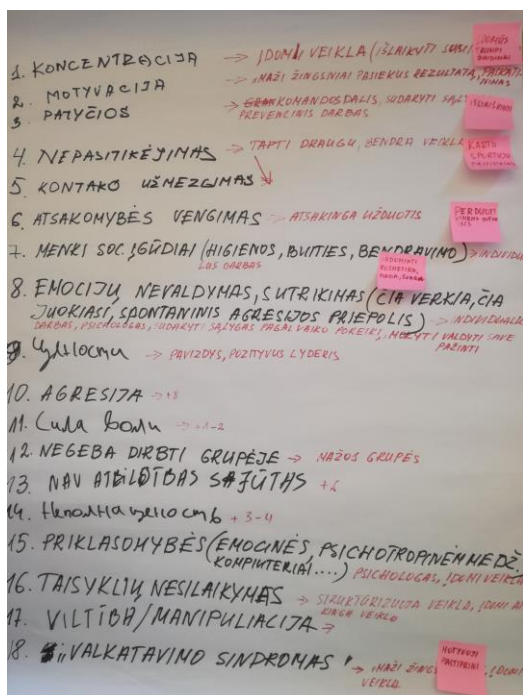 1. KONCENTRACIJA → ĮDOMI VEIKLA (IŠLAIKYTI
2. MOTYVACIJA → „MAŽI ŽINGSNIAI PASIEKUS REZULTATĄ,
3. PATYČIOS → KOMANDOS DALIS, SUDARYTI
PREVENCINIS DARBAS
4. NEPASITIKĖJIMAS → TAPTI DRAUGU, BENDRA VEIKLA
KARTU
5. KONTAKO UŽMEZGIMAS
6. ATSAKOMYBĖS VENGIMAS → ATSAKINGA UŽDUOTIS
7. MENKI SOC. ĮGŪDIAI (HIGIENOS, BUITIES, BENDRAVIMO) → INDIVIDUA
LUS DARBAS
8. EMOCIJŲ NEVALDYMAS, SUTRIKIMAS (ČIA VERKIA, ČIA
JUOKIASI, SPONTANINIS AGRESIJOS PRIEPOLIS) → INDIVIDUALUS
DARBAS, PSICHOLOGAS, SUDARYTI SĄLYGAS PAGAL VAIKO POREIKĮ, MOKYTI VALDYTI SAVE
PAŽINTI
9. → PAVIZDYS, POZITYVUS LYDERIS
10. AGRESIJA → +8
11. Сила воли → +1-2
12. NEGEBA DIRBTI GRUPĖJE → MAŽOS GRUPĖS
13. NAV ATBILDĪBAS SAJŪTAS +6
14. + 3-4
15. PRIKLASOMYBĖS (EMOCINĖS, PSICHOTROPINĖM MEDŽ.
KOMPIUTERIAI....) PSICHOLOGAS, ĮDOMI VEIKLA
16. TAISYKLIŲ NESILAIKYMAS → VEIKLA, ĮDOMI
VEIKLA
17. VILTĪBA/MANIPULIACIJA →
18. „VALKATAVIMO SINDROMAS" → „MAŽI ĮDOMI
VEIKLA